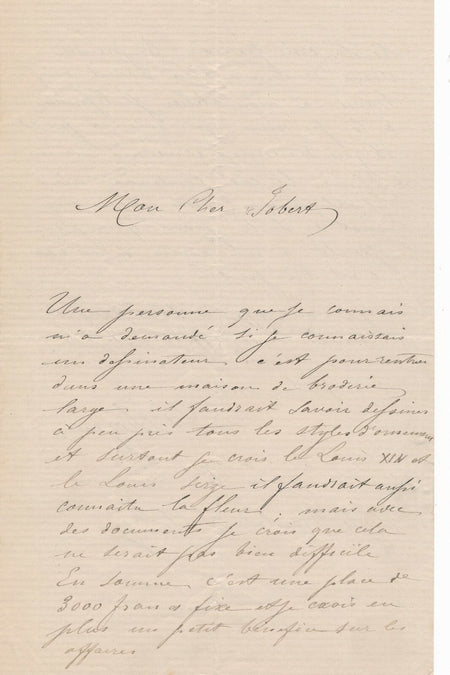 Mon Cher Jobert
Une personne que je connais
m'a demandé si je connaissais
un dessinateur c'est pour rentrer
dans une maison de broderie
large, il faudrait savoir dessiner
à peu près tous les styles d'ornement
et surtout je crois le Louis XIV et
le Louis seize il faudrait aussi
connaitre la fleur, mais avec
des documents je crois que cela
ne serait pas bien difficile
En somme c'est une place de
3000 francs fixe et je crois en
plus un petit bénéfice sur les
affaires